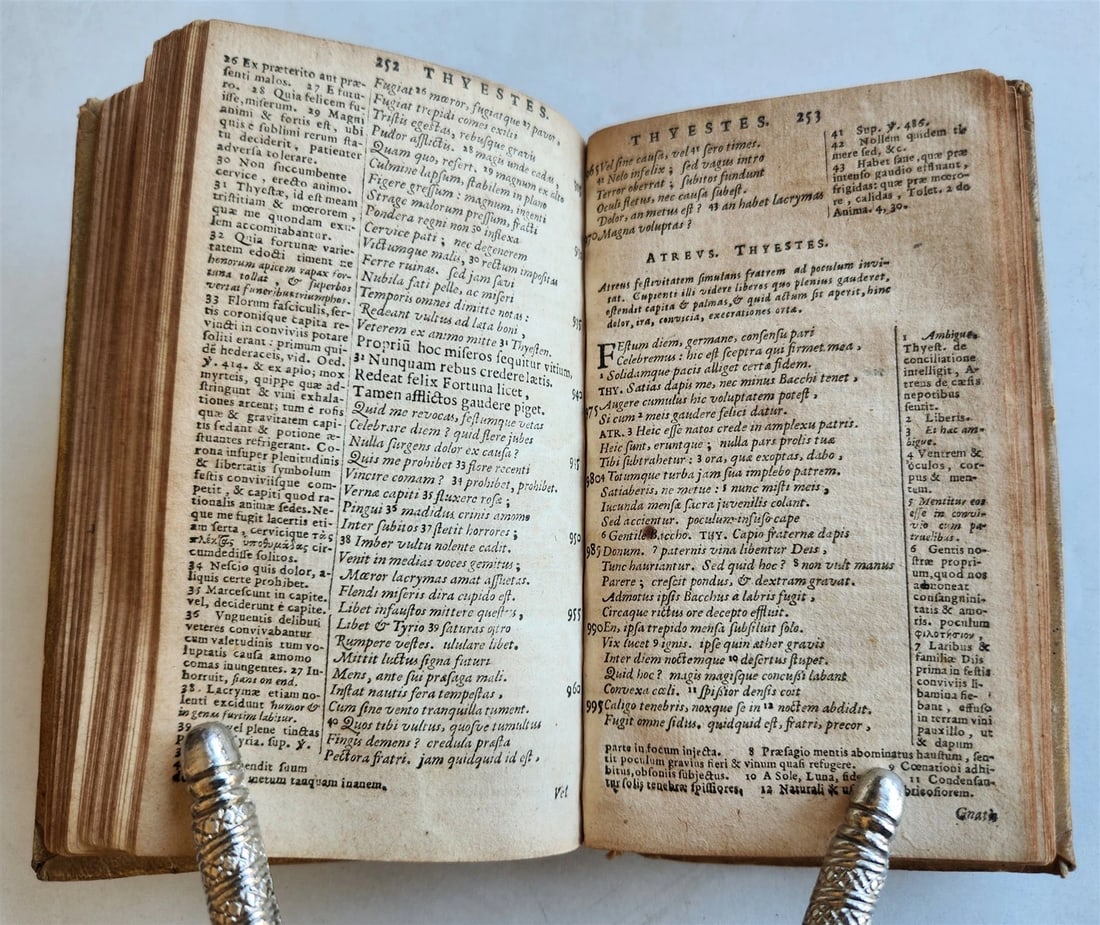 252 THYESTES.
26 Ex præterito aut præ-
ſenti malos. 27 E futu-
ro. 28 Quia felicem fu-
iſſe, miſerum. 29 Magni
animi & fortis eſt, ubi
quis e ſublimi rerum ſta-
tu deciderit, patienter
adverſa tolerare.
30 Non ſuccumbente
cervice, erecto animo.
31 Thyeſtæ, id eſt meam
triſtitiam & mœrorem,
quæ me quondam exu-
lem accomitabantur.
32 Quia fortunæ varie-
tatem edocti timent ne
honorum apicem rapax for-
tuna tollat, & ſuperbos
vertat funeribus triumphos.
33 Florum faſciculis, ſer-
tis coroniſque capita re-
vincti in conviviis potare
ſoliti erant: primum qui-
dē hederaceis, vid. Oed.
ꝟ. 414. & ex apio; mox
myrteis, quippe quæ ad-
ſtringunt & vini exhala-
tiones arcent; tum è roſis
quæ & gravitatem capi-
tis ſedant & potione æ-
ſtuantes refrigerant. Co-
rona inſuper plenitudinis
& libertatis ſymbolum
feſtis conviviiſque com-
petit, & capiti quod ra-
tionalis animæ ſedes. Ne-
que me fugit lacertis eti-
am ſerta, cervicique τὰς
πλεκτὰς ὑποθυμιάδας cir-
cumdediſſe ſolitos.
34 Neſcio quis dolor, a-
liquis certe prohibet.
35 Marceſcunt in capite.
vel, deciderunt è capite.
36 Vnguentis delibuti
veteres convivabantur
cum valetudinis tum vo-
luptatis cauſa amomo
comas inungentes. 27 In-
horruit, ſtans on end.
38. Lacrymæ etiam no-
lenti excidunt humor &
in genas furtim labitur.
39 vel plene tinctas
yria. ſup. ꝟ.
endit ſuum
metum tanquam inanem.
Fugiat 26 mœror, fugiatque 27 pavor,
Fugiat trepidi comes exilii
Triſtis egeſtas, rebuſque gravis
Pudor afflictis. 28 magis unde cadas,
Quam quo, refert. 29 magnum ex alto
Culmine lapſum, ſtabilem in plano
Figere greſſum: magnum, ingenti
Strage malorum preſſum, fracti
Pondera regni non 30 inflexa
Cervice pati; nec degenerem
Victumque malis, 30 rectum impoſitas
Ferre ruinas. ſed jam ſævi
Nubila fati pelle, ac miſeri
Temporis omnes dimitte notas:
Redeant vultus ad læta boni, 935
Veterem ex animo mitte 31 Thyeſten.
Propriū hoc miſeros ſequitur vitium,
32 Nunquam rebus credere lætis.
Redeat felix Fortuna licet,
Tamen afflictos gaudere piget. 940
Quid me revocas, feſtumque vetas
Celebrare diem? quid flere jubes
Nulla ſurgens dolor ex cauſa?
Quis me prohibet 33 flore recenti
Vincire comam? 34 prohibet, prohibet. 945
Vernæ capiti 35 fluxere roſæ;
Pingui 36 madidus crinis amomo
Inter ſubitos 37 ſtetit horrores;
38 Imber vultu nolente cadit.
Venit in medias voces gemitus; 950
Mœror lacrymas amat aſſuetas.
Flendi miſeris dira cupido eſt.
Libet infauſtos mittere queſtus,
Libet & Tyrio 39 ſaturas oſtro
Rumpere veſtes. ululare libet. 955
Mittit luctus ſigna futuri
Mens, ante ſui præſaga mali.
Inſtat nautis fera tempeſtas,
Cum ſine vento tranquilla tument.
40 Quos tibi vultus, quoſve tumultus 960
Fingis demens? credula præſta
Pectora fratri. jam quidquid id eſt,
Vel
THYESTES. 253
965 Vel ſine cauſa, vel 41 ſero times.
42 Nolo infelix; ſed vagus intro
Terror oberrat; ſubitos fundunt
Oculi fletus, nec cauſa ſubeſt.
Dolor, an metus eſt? 43 an habet lacrymas
970 Magna voluptas?
41 Sup. ꝟ. 486.
42 Nollem quidem ti-
mere ſed, &c.
43 Habet ſane, quæ præ
intenſo gaudio effluunt,
frigidas: quæ præ mœro-
re, calidas, Tolet. 2 do
Anima. 4, 30.
ATREVS. THYESTES.
Atreus feſtivitatem ſimulans fratrem ad poculum invi-
tat. Cupienti illi videre liberos quo plenius gauderet,
oſtendit capita & palmas, & quid actum ſit aperit, hinc
dolor, ira, convicia, execrationes ortæ.
FEſtum diem, germane, conſenſu pari
Celebremus: hic eſt ſceptra qui firmet mea,
1 Solidamque pacis alliget certæ fidem.
THY. Satias dapis me, nec minus Bacchi tenet,
975 Augere cumulus hic voluptatem poteſt,
Si cum 2 meis gaudere felici datur.
ATR. 3 Heic eſſe natos crede in amplexu patris.
Heic ſunt, eruntque; nulla pars prolis tuæ
Tibi ſubtrahetur: 3 ora, quæ exoptas, dabo,
980 4 Totumque turba jam ſua implebo patrem.
Satiaberis, ne metue: 5 nunc miſti meis,
Iucunda menſæ ſacra juvenilis colant.
Sed accientur. poculum infuſo cape
6 Gentile Baccho. THY. Capio fraternæ dapis
985 Donum. 7 paternis vina libentur Deis,
Tunc hauriantur. Sed quid hoc? 8 non vult manus
Parere; creſcit pondus, & dextram gravat.
Admotus ipſis Bacchus a labris fugit,
Circaque rictus ore decepto effluit.
990 En, ipſa trepido menſa ſubſiluit ſolo.
Vix lucet 9 ignis. ipſe quin æther gravis
Inter diem noctemque 10 deſertus ſtupet.
Quid hoc? magis magiſque concuſſi labant
Convexa cœli. 11 ſpiſſior denſis coit
995 Caligo tenebris, noxque ſe in 12 noctem abdidit.
Fugit omne ſidus. quidquid eſt, fratri, precor,
1 Ambigue,
Thyeſt. de
conciliatione
intelligit, A-
treus de cæſis
nepotibus
ſentit.
2 Liberis.
3 Et hæc am-
bigue.
4 Ventrem &
oculos, cor-
pus & men-
tem.
5 Mentitur eos
eſſe in convi-
vio cum pa-
truelibus.
6 Gentis no-
ſtræ propri-
um, quod nos
admoneat
conſanguini-
tatis & amo-
ris. poculum
φιλοτήσιον,
7 Laribus &
familiæ Diis
prima in feſtis
conviviis li-
bamina fie-
bant, effuſo
in terram vini
pauxillo, ut
& dapum
parte in focum injecta. 8 Præſagio mentis abominatus hauſtum, ſen-
tit poculum gravius fieri & vinum quaſi refugere. 9 Cœnationi adhi-
bitus, obſoniis ſubjectus. 10 A Sole, Luna, 11 Condenſan-
tur ſolis tenebræ ſpiſſiores, 12 Naturali & bricoſiorem.
Gnatis